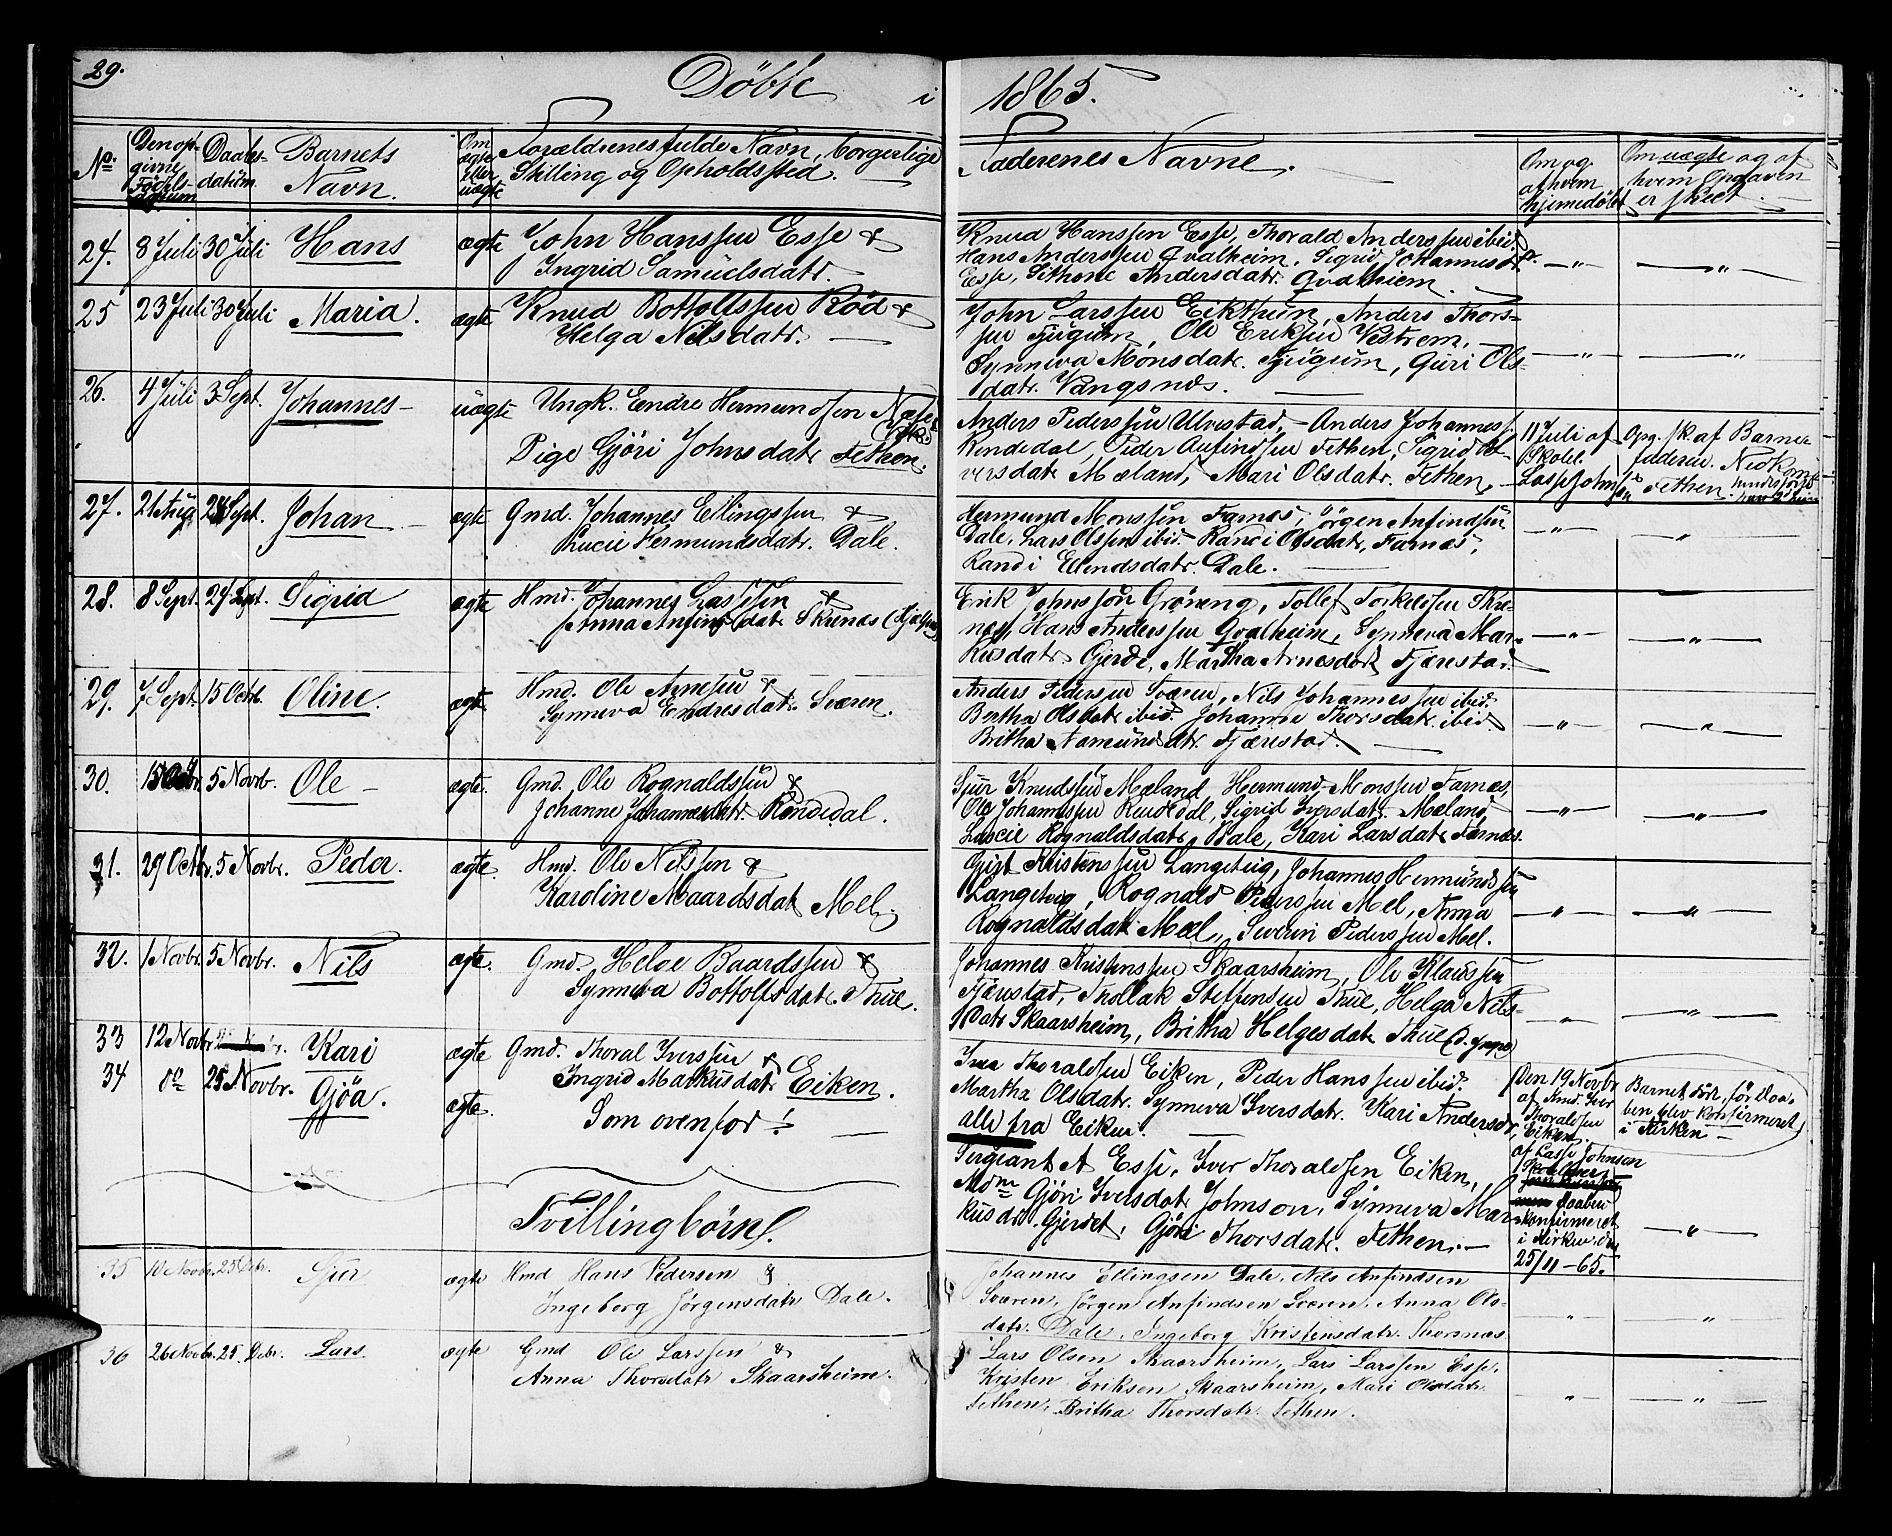 29.
Döbte i 1865.
No.
Den op-
givne
Födsels-
datum
Daabs-
datum
Barnets
Navn.
Om
ægte
eller
uægte
Forældrenes fulde Navn, borgerlige
Stilling og Opholdssted.
Faderenes Navne.
Om og
af hvem
hjemedöbt
Om uægte og af
hvem Opgaven
er skeet.
24. 8 Juli 30 Juli Hans ægte John Hanssen Esse &
Ingrid Samuelsdatr.
Knud Hanssen Esse, Thorald Anderssen ibid.
Hans Anderssen Qvalheim, Sigrid Johannesdr.
Esse, Sithone Andersdatr. Qvalhiem. — " — — " —
25 23 Juli 30 Juli Maria. ægte Knud Bottolfssen Röd &
Helga Nilsdatr. —
John Larssen Eikthun, Anders Thors-
sen Tjugum, Ole Eriksen Vestrem,
Synneva Monsdatr. Tjugum, Guri Ols-
datr. Vangsnes. — " — — " —
26. 4 Juli 3 Sept. Johannes — uægte Ungk. Endre Hermundssen Næse
Pige Gjöri Johnsdatr Fethen.
Anders Pederssen Ulvestad, — Anders Johanness.
Rendedal, Peder Anfindsen Fethen, Sigrid
versdatr Mæland, Mari Olsdatr. Fethen. —
11 Juli af
Skolel.
Lasse Johnsen
Opg. sk. af Barne-
faderen.
Fethen.
27. 21 Aug. 24 Sept. Johan ægte Gmd. Johannes Ellingssen &
Lucie Hermundsdatr. Dale.
Hermund Monssen Farnes, Jörgen Anfindsen
Dale, Lars Olssen ibid. Randi Olsdatr, Farnes,
Randi Erlendsdatr. Dale. — " — — " —
28. 8 Sept. 24 Sept. Sigrid ægte Hmd. Johannes Lassesen &
Anna Anfindsdatr Skrenes
Erik Johnssön Gröneng, Tollef Torkelssen Skre-
nes, Hans Anderssen Qvalheim, Synneva Mar-
kusdatr. Gjerde, Martha Arnesdatr Fjærestad. — " — — " —
29. 7 Sept. 15 Octb. Oline. ægte Hmd. Ole Arnesen &
Synneva Endresdatr. Sværen.
Anders Pederssen Sværen, Nils Johannessen ibid.
Bertha Olsdatr ibid. Johanne Thorsdatr. ibid.
Britha Aamundsdtr. Fjærestad. — " — — " —
30. 15 Octbr. 5 Novbr. Ole — ægte. Gmd. Ole Rognaldssen &
Johanne Johannesdatr. Rendedal.
Sjur Knudssen Mæland, Hermund Monssen Farnes,
Ole Johannessen Rendedal, Sigrid Iversdatr. Mæland,
Luscie Rognaldsdatr. Dale, Kari Larsdatr Farnes. — " — — " —
31. 29 Octbr. 5 Novbr. Peder. ægte. Hmd. Ole Nilssen &
Karoline Maardsdatr Mel.
Gjest Kristenssen Langeteig, Johannes Hermundssen
Langeteig, Rognald Pederssen Mel, Anna
Rognaldsdatr. Mæl, Severin Pederssen Mel. — " — — " —
32. 1 Novbr. 5 Novbr. Nils ægte. Gmd. Helge Baardssen &
Synneva Bottolfsdatr. Thue.
Johannes Kristenssen Skaarsheim, Ole Klaussen
Fjærestad, Thollak Steffensen Thue, Helga Nils-
datr Skaarsheim, Britha Helgesdatr Thue (d. yngre) — " — — " —
33 12 Novbr. Kari ægte Gmd. Thoral Iverssen &
Ingrid Markusdatr Eiken.
Iver Thoraldsen Eiken, Peder Hanssen ibid.
Martha Olsdatr. Synneva Iversdatr. Kari Andersdr.
alle fra Eiken.
Den 19 Novbr
af Kmd. Iver
Thoraldsen
Eiken.
Barnet död, för Daa-
ben blev konfirmeret
i Kirken —
34 do 25 Novbr. Gjöa. ægte. Som ovenfor!
Sergeant A Esse, Iver Thoraldsen Eiken,
Mdm Gjöri Iversdatr Johnson, Synneva Mar-
kusdr. Gjerdet, Gjöri Thorsdatr. Fethen. —
af Lasse Johnsen
Skolelærer
Daaben
konfirmeret
i Kirken den
25/11 — 65. — " —
Tvillingbörn.
35 10 Novbr. 25 Debr. Sjur ægte Hmd Hans Pedersen &
Ingeborg Jörgensdatr Dale.
Johannes Ellingsen Dale, Nils Anfindsen
Sværen, Jörgen Anfindsen Sværen, Anna Ols-
datr. Dale, Ingeborg Kristensdatr. Thorsnæs. " — " —
36 26 Novbr. 25. Debr. Lars. ægte Gmd Ole Larssen &
Anna Thorsdatr Skaarsheim.
Lars Olsen Skaarsheim, Lars Larssen Esse,
Kristen Eriksen Skaarsheim, Mari Olsdatr.
Fethen, Britha Thorsdatr. Fethen. — " — — " —